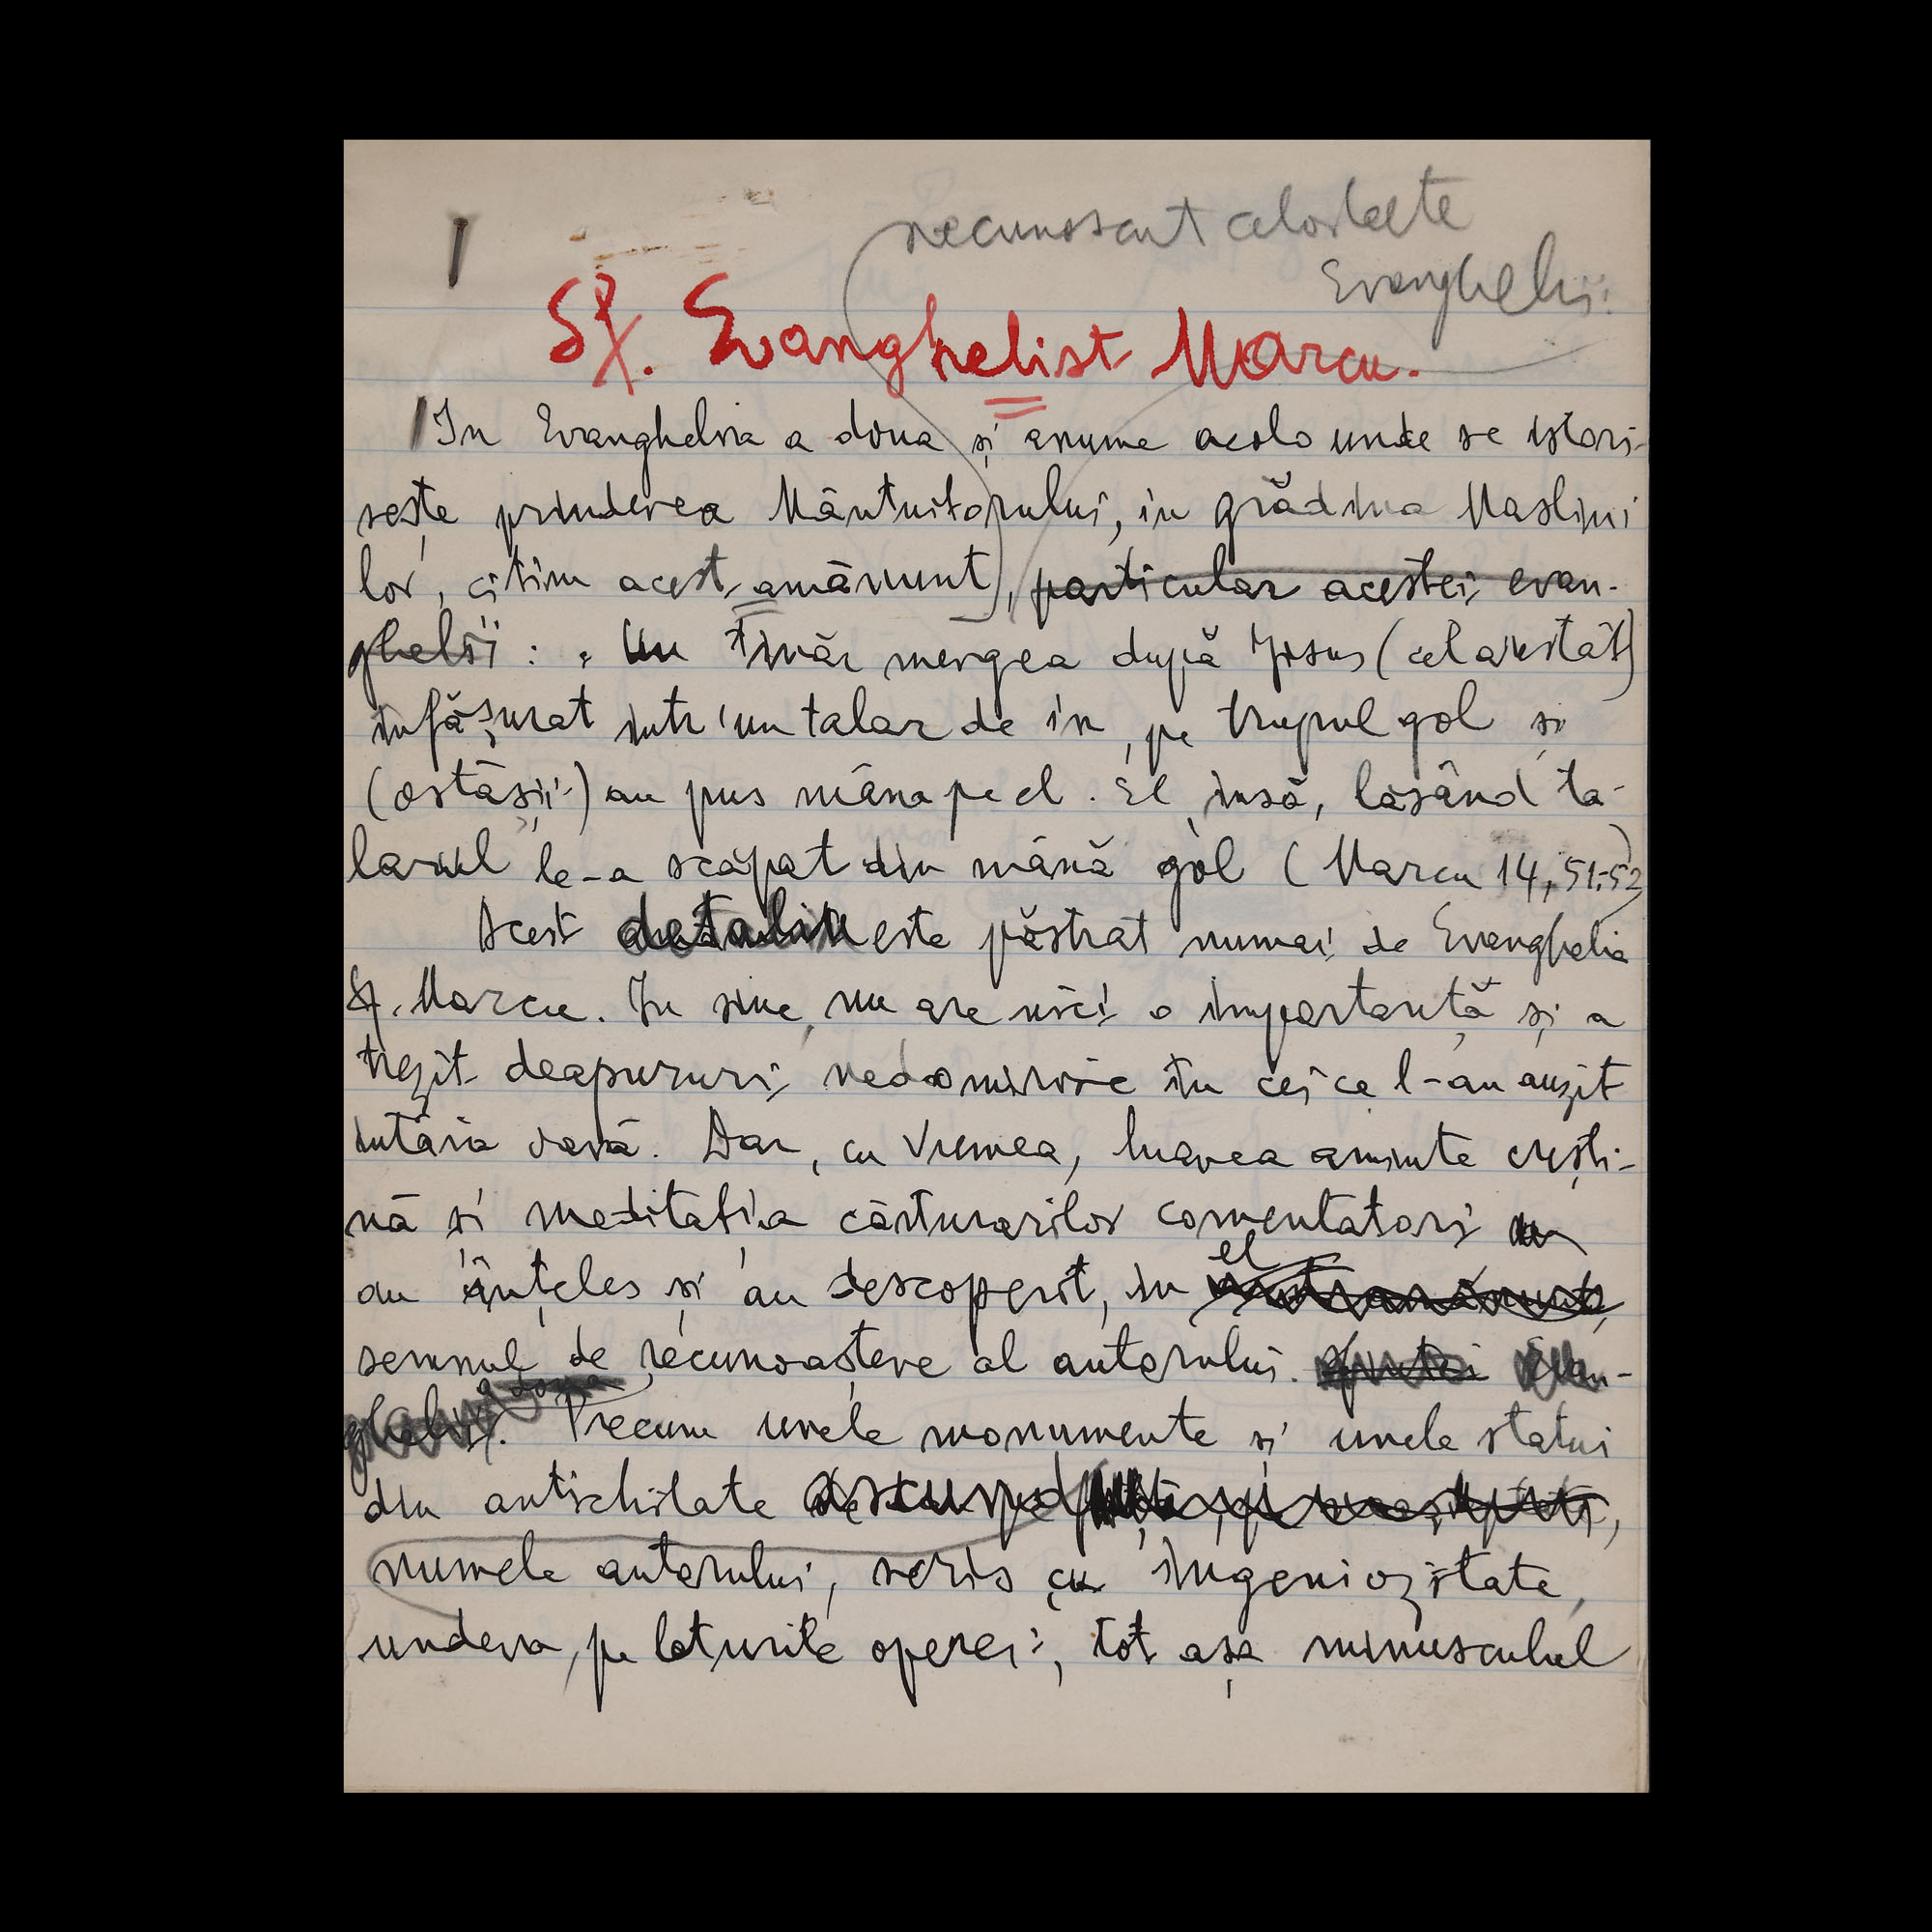 1
necunoscut celorlalte
Evanghelii.
Sf. Evanghelist Marcu.
In Evanghelia a doua și anume acolo unde se istori-
sește prinderea Mântuitorului, in grădina Maslini
lor, citim acest amănunt, particular acestei evan-
ghelii : „ Un tinăr mergea după Iisus (cel arestat)
infășurat intr'un talar de in, pe trupul gol și
(ostășii) au pus mâna pe el. El insă, lăsând ta-
larul le-a scăpat din mână gol (Marcu 14, 51-52)
Acest detaliu este păstrat numai de Evanghelia
Sf. Marcu. In sine, nu are nici o importanță și a
trezit deapururi nedomirire in cei ce l-au auzit
intâia oară. Dar, cu vremea, luarea aminte crești-
nă și meditația cărturarilor comentatori
au ințeles și au descoperit, in el
semnul de recunoaștere al autorului. Evan-
gheliei a doua. Precum unele monumente și unele statui
din antichitate ascund
numele autorului, scris cu ingeniozitate,
undeva, pe laturile operei, tot așa minusculul